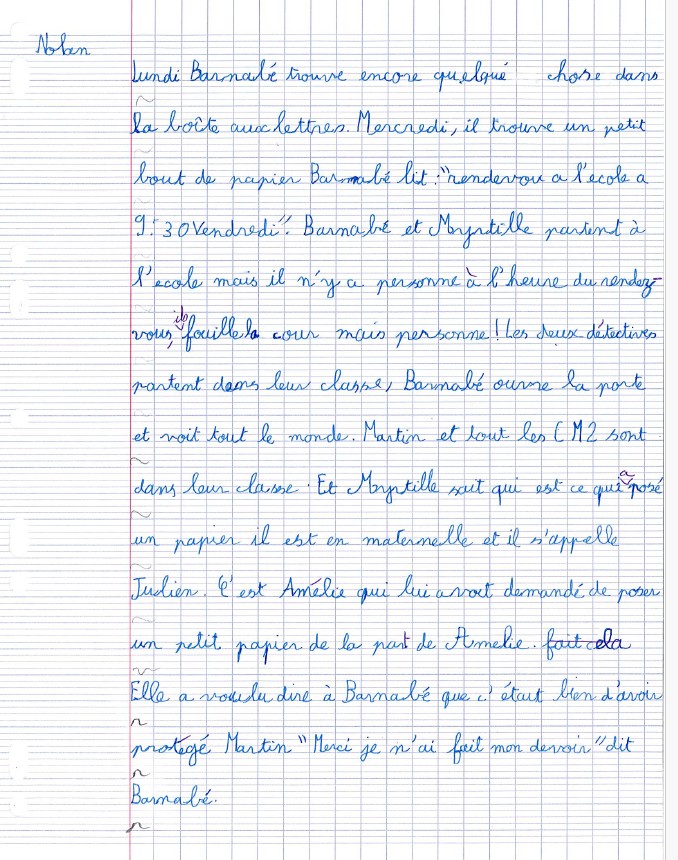 Nolan
Lundi Barnabé trouve encore quelqué chose dans
la boîte aux lettres. Mercredi, il trouve un petit
bout de papier Barnabé lit : "rendevou a l'ecole a
9:30 Vendredi". Barnabé et Myrtille partent à
l'ecole mais il n'y a personne à l'heure du rendez-
vous, ils fouille la cour mais personne ! Les deux détectives
partent dans leur classe, Barnabé ouvre la porte
et voit tout le monde. Martin et tout les CM2 sont
dans leur classe. Et Myrtille sait qui est ce qui a posé
un papier il est en maternelle et il s'appelle
Julien. C'est Amélie qui lui avait demandé de poser
un petit papier de la part de Amelie. fait cela
Elle a voulu dire à Barnabé que c'était bien d'avoir
protégé Martin "Merci je n'ai fait mon devoir" dit
Barnabé.